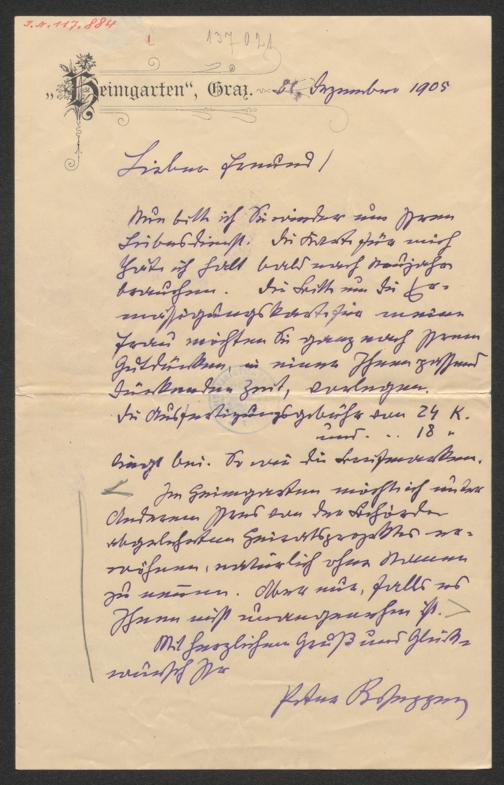 I.N. 117.884
137021
„Heimgarten“, Graz. 21. Dezember 1905
Lieber Freund!
Nun bitte ich Sie wieder um Ihren
Liebesdienst. Die Karte für mich
thäte ich halt bald nach Neujahr
brauchen. Die Bitte um die Er-
mässigungskarte für meine
Frau möchten Sie ganz nach Ihrem
Gutdünken, in einer Ihnen passend
dünkenden Zeit, vorlegen.
Die Ausfertigungsgebühr von 24 K.
und . . 18 "
liegt bei. So wie die Briefmarken.
Im Heimgarten möchte ich unter
Anderem Ihres von der Behörde
abgelehnten Heiratsprojektes er-
wähnen, natürlich ohne Namen
zu nennen. Aber nur, falls es
Ihnen nicht unangenehm ist.
Mit herzlichem Gruß und Glück-
wunsch Ihr
Peter Rosegger